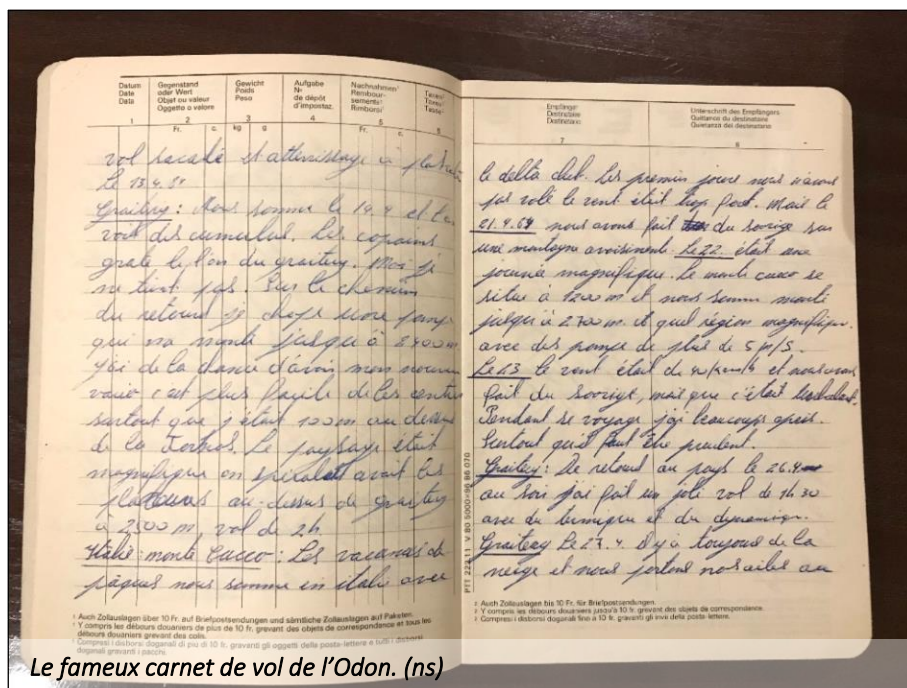 Datum
Date
Data
Gegenstand
oder Wert
Objet ou valeur
Oggetto o valore
Gewicht
Poids
Peso
Aufgabe
Nr.
de dépôt
d'impostaz.
Nachnahmen
Rembour-
sements
Rimborsi
Taxen
Taxes
Tasse
1 2 3 4 5 6
Fr. c. kg g Fr. c.
vol et atterrissage à
Le 13.4.
Graitery : Nous somme le 19.4 et
voit des cumulus. Les copains
grate le lon du graitery. Moi je
ne tient pas. Sur le chemin
du retour je chope une pompe
qui ma monté jusqu'à 2400 m
j'ai de la chance d'avoir mon nouveau
vario c'est plus facile de les
surtout que j'étai 100 m au dessus
de la . Le paysage était
magnifique on avait les
au-dessus de graitery
à 2500 m, vol de 2h
Italie : monte Cucco : Les vacances de
pâques nous somme en italie avec
¹ Auch Zollauslagen über 10 Fr. auf Briefpostsendungen und sämtliche Zollauslagen auf Paketen.
² Y compris les débours douaniers de plus de 10 fr. grevant des objets de correspondance et tous les
débours douaniers grevant des colis.
³ Compresi i disborsi doganali di più di 10 fr. gravanti gli oggetti della posta-lettere e tutti i disborsi
doganali gravanti i pacchi.
Empfänger
Destinataire
Destinatario
Unterschrift des Empfängers
Quittance du destinataire
Quietanza del destinatario
7 8
le delta club. Les premier jours nous n'avons
pas volé le vent était trop fort. Mais le
21.4. nous avons fait du soring sur
une montagne avoisinente. Le 22. était une
journée magnifique. Le monte cucco se
situe à 1200 m et nous somm monté
jusqu'à 2700 m. et quel région magnifique.
avec des pompe de plus de 5 m/s.
Le 23 le vent était de 40 km/h et nous avons
fait du , mais que c'était .
Pendant se voyage j'ai beaucoups apris.
Surtout qu'il faut être prudent.
Graitery : De retour au pays le 26.4
au soir j'ai fait un joli vol de 1h30
avec du termique et du dynamique.
Graitery Le 27.4. Il y a toujours de la
neige et nous portons nos ailes au
¹ Auch Zollauslagen bis 10 Fr. für Briefpostsendungen.
² Y compris les débours douaniers jusqu'à 10 fr. grevant des objets de correspondance.
³ Compresi i disborsi doganali fino a 10 fr. gravanti gli invii della posta-lettere.
PTT 222.11 V 80 5000×96 B6 070
Le fameux carnet de vol de l'Odon. (ns)